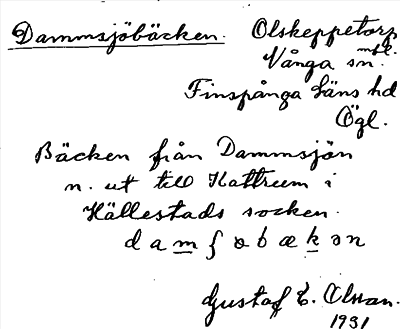 Dammsjöbäcken. Olskeppetorp
Vånga sn.
Finspånga läns hd
Ögl.
Bäcken från Dammsjön
n. ut till Kattrum i
Hällestads socken.
Gustaf E. Olsson.
1931